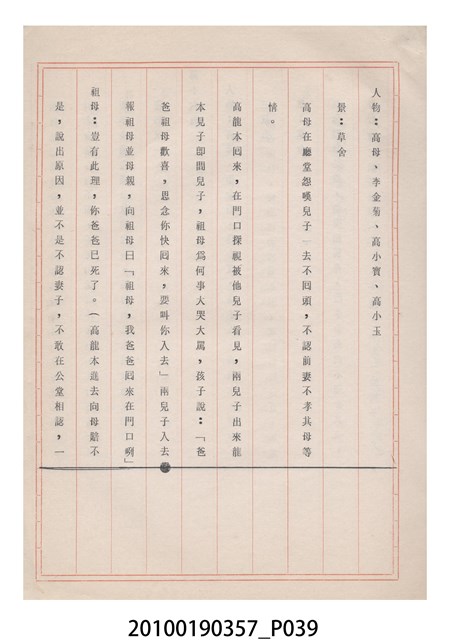 人物：高母、李金菊、高小寶、高小玉
景：草舍
高母在廳堂怨嘆兒子一去不囘頭，不認前妻不孝其母等
情。
高龍本囘來，在門口探視被他兒子看見，兩兒子出來龍
本見兒子卽問兒子，祖母爲何事大哭大罵，孩子說：「爸
爸祖母歡喜，思念你快囘來，要叫你入去」兩兒子入去
報祖母並母親，向祖母曰「祖母，我爸爸囘來在門口啊」
祖母：豈有此理，你爸爸已死了。（高龍本進去向母賠不
是，說出原因，並不是不認妻子，不敢在公堂相認，一
20100190357_P039